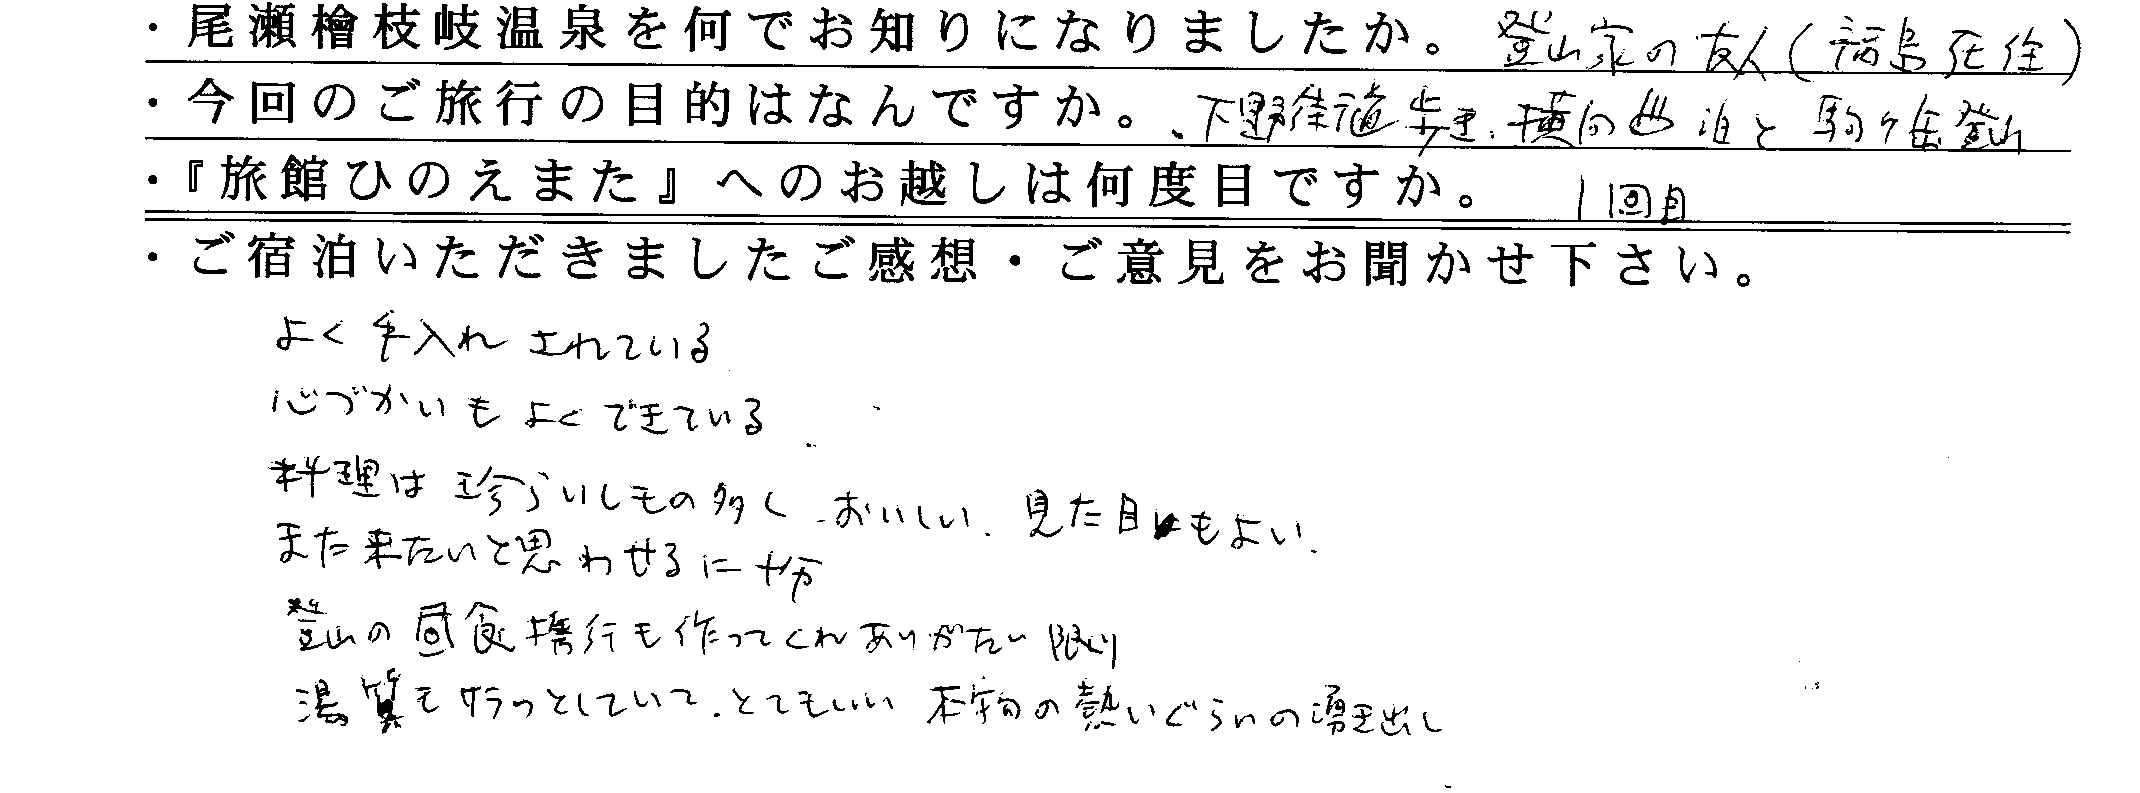 ・尾瀬檜枝岐温泉を何でお知りになりましたか。 登山家の友人(福島在住)
・今回のご旅行の目的はなんですか。 、下野街道歩き、横向 泊と駒ヶ岳登山
・『旅館ひのえまた』へのお越しは何度目ですか。 1回目
・ご宿泊いただきましたご感想・ご意見をお聞かせ下さい。
よく手入れされている
心づかいもよくできている
料理は珍らいしもの多く、おいしい、見た目もよい。
また来たいと思わせるに十分
登山の昼食携行も作ってくれありがたい限り
湯質もサラっとしていて、とてもいい 本物の熱いぐらいの湧き出し